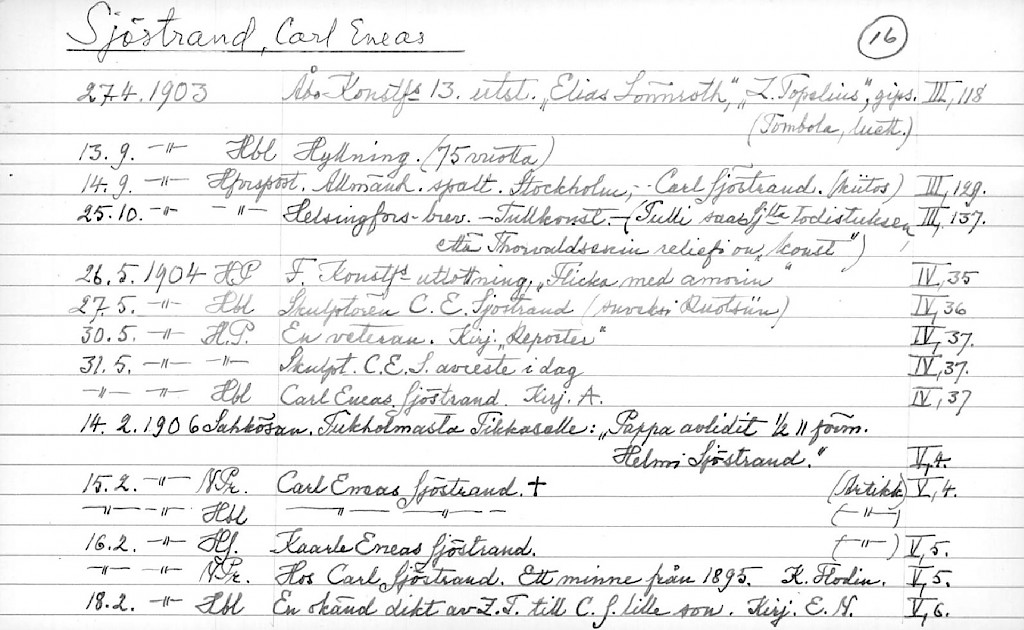 Sjöstrand, Carl Eneas 16
27.4.1903 Åbo Konstfs 13. utst. „Elias Lönnroth", „Z. Topelius", gips. III, 118
(Tombola, luett.)
13.9. –"– Hbl Hyllning. (75 vuotta)
14.9. –"– Hforspost. Allmänh. spalt. Stockholm, – Carl Sjöstrand. (kiitos) III, 129.
25.10. –"– –"– Helsingfors-brev. – Tullkonst. – (Tulli saa Sj:ltä todistuksen, III, 137.
että Thorvaldsenin reliefi on „konst")
26.5.1904 HP F. Konstfs utlottning, „Flicka med amorin" IV, 35
27.5. –"– Hbl Skulptören C. E. Sjöstrand (suveksi Ruotsiin) IV, 36
30.5. –"– H.P. En veteran. Kirj. „Reporter" IV, 37.
31.5. –"– –"– Skulpt. C. E. S. avreste i dag IV, 37.
–"– –"– Hbl Carl Eneas Sjöstrand. Kirj. A. IV, 37
14.2.1906 Sähkösan. Tukholmasta Tikkaselle: „Pappa avlidit ½ 11 förm.
Helmi Sjöstrand." V, 4.
15.2. –"– N.Pr. Carl Eneas Sjöstrand. † (Artikk) V, 4.
–"– –"– Hbl –"– –"– –"– (–"–)
16.2. –"– Hf. Kaarle Eneas Sjöstrand. (–"–) V, 5.
–"– –"– N.Pr. Hos Carl Sjöstrand. Ett minne från 1895. K. Flodin. V, 5.
18.2. –"– Hbl En okänd dikt av Z. T. till C. S. lille son. Kirj. E. N. V, 6.